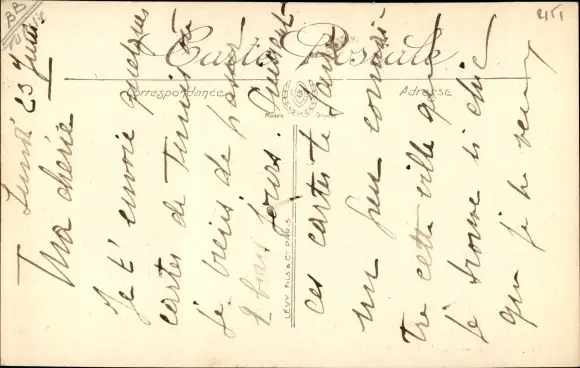 Carte Postale
Correspondance
Adresse
Modèle Déposé
LÉVY FILS & Cie PARIS
Lundi 23 Juin
Ma chérie
Je t'envoie quelques
cartes de Tunis où
je viens de passer
2 bons jours.
ces cartes te faire
un peu connaî-
tre cette ville que
je trouve si chic
que je ne